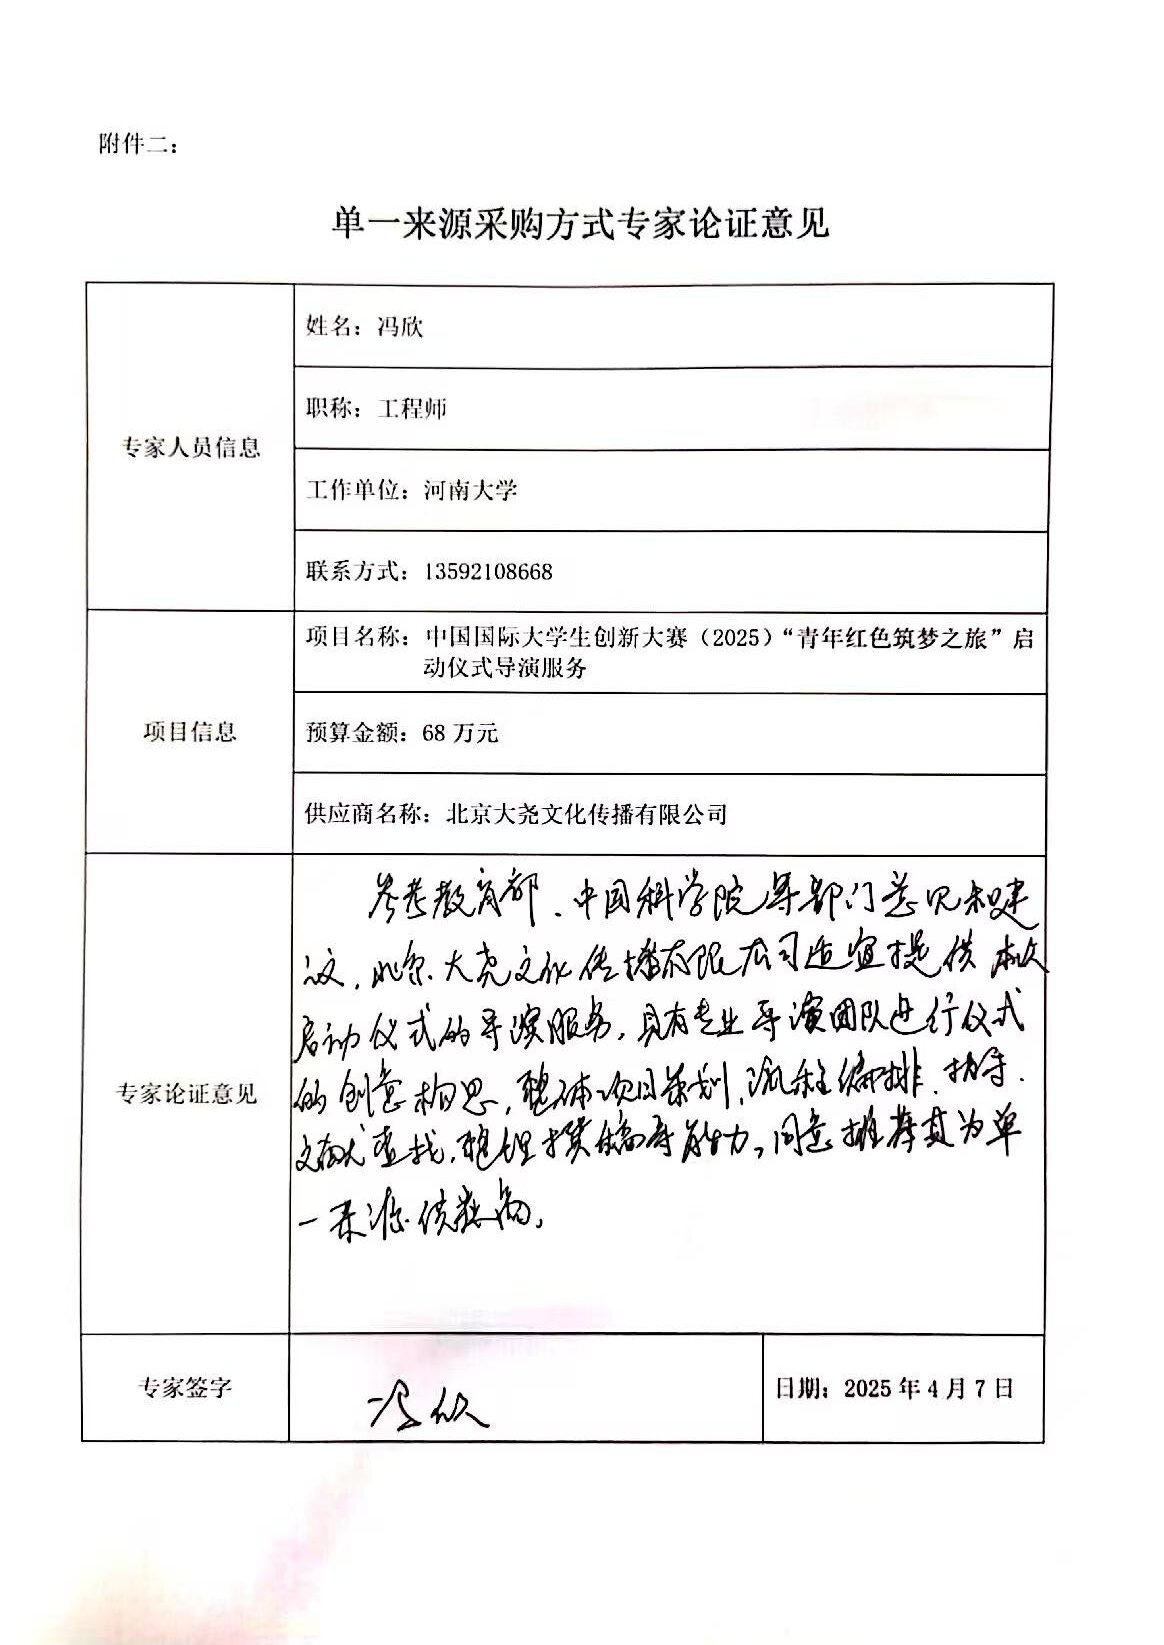 附件二：
单一来源采购方式专家论证意见
专家人员信息
姓名：冯欣
职称：工程师
工作单位：河南大学
联系方式：13592108668
项目信息
项目名称：中国国际大学生创新大赛（2025）“青年红色筑梦之旅”启
动仪式导演服务
预算金额：68 万元
供应商名称：北京大尧文化传播有限公司
专家论证意见
参考教育部、中国科学院等部门意见和建
议，北京大尧文化传播有限公司适宜提供本次
启动仪式的导演服务，具有专业导演团队进行仪式
的创意构思，整体项目策划，流程编排、指导、
文献查找，整理撰稿等能力，同意推荐其为单
一来源供应商。
专家签字
冯欣
日期：2025 年 4 月 7 日